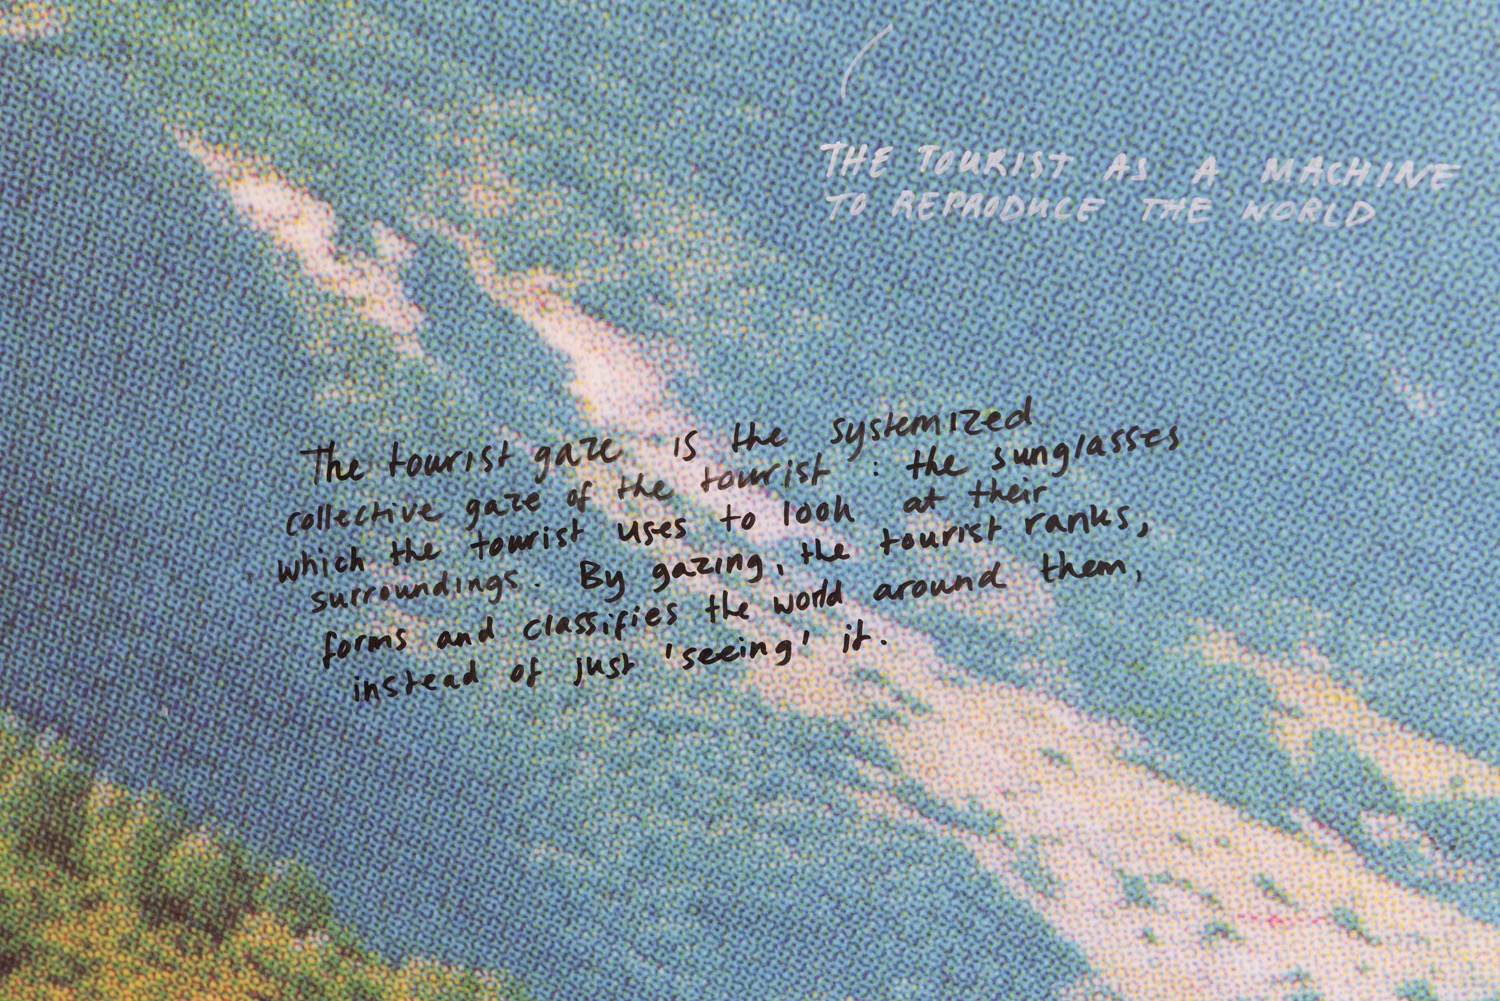 THE TOURIST AS A MACHINE
TO REPRODUCE THE WORLD
The tourist gaze is the systemized
collective gaze of the tourist : the sunglasses
which the tourist uses to look at their
surroundings. By gazing, the tourist ranks,
forms and classifies the world around them,
instead of just 'seeing' it.